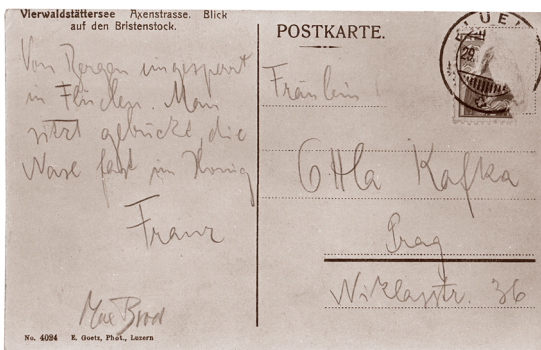 Vierwaldstättersee Axenstrasse. Blick
auf den Bristenstock.
Von Bergen eingesperrt
in Flüelen. Man
sitzt gebückt, die
Nase fast im Honig
Franz
Max Brod
No. 4094 E. Goetz, Phot., Luzern
POSTKARTE.
Fräulein
Ottla Kafka
Prag
Niklasstr. 36
29